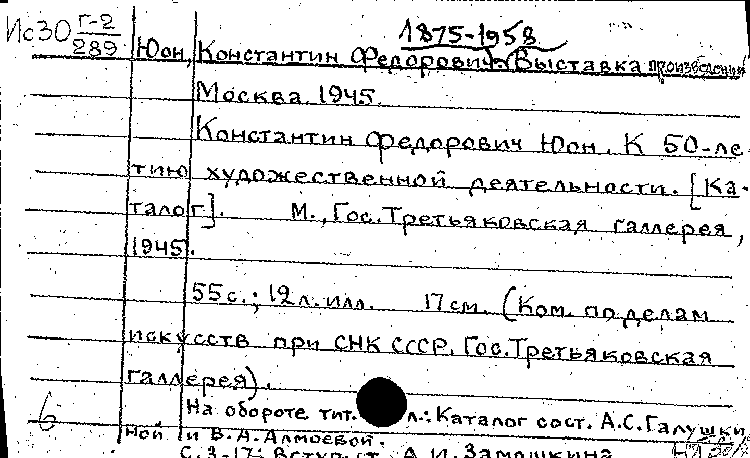 Ис30 Г-2/289
1875-1958
Юон, Константин Федорович. Выставка произведений
Москва 1945.
Константин Федорович Юон. К 50-ле-
тию художественной деятельности. [Ка-
талог]. М., Гос. Третьяковская галлерея,
1945.
55с.; 12л. илл. 17 см. (Ком. по делам
искусств при СНК СССР. Гос. Третьяковская
галлерея).
На обороте тит. л.: Каталог сост. А.С. Галушки
6 ной и В.А. Алмоевой.
С. 3-17: Вступ. ст. А.И. Замошкина